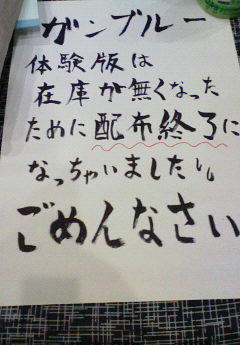 ガンブルー
体験版は
在庫が無くなった
ために配布終了に
なっちゃいました
ごめんなさい